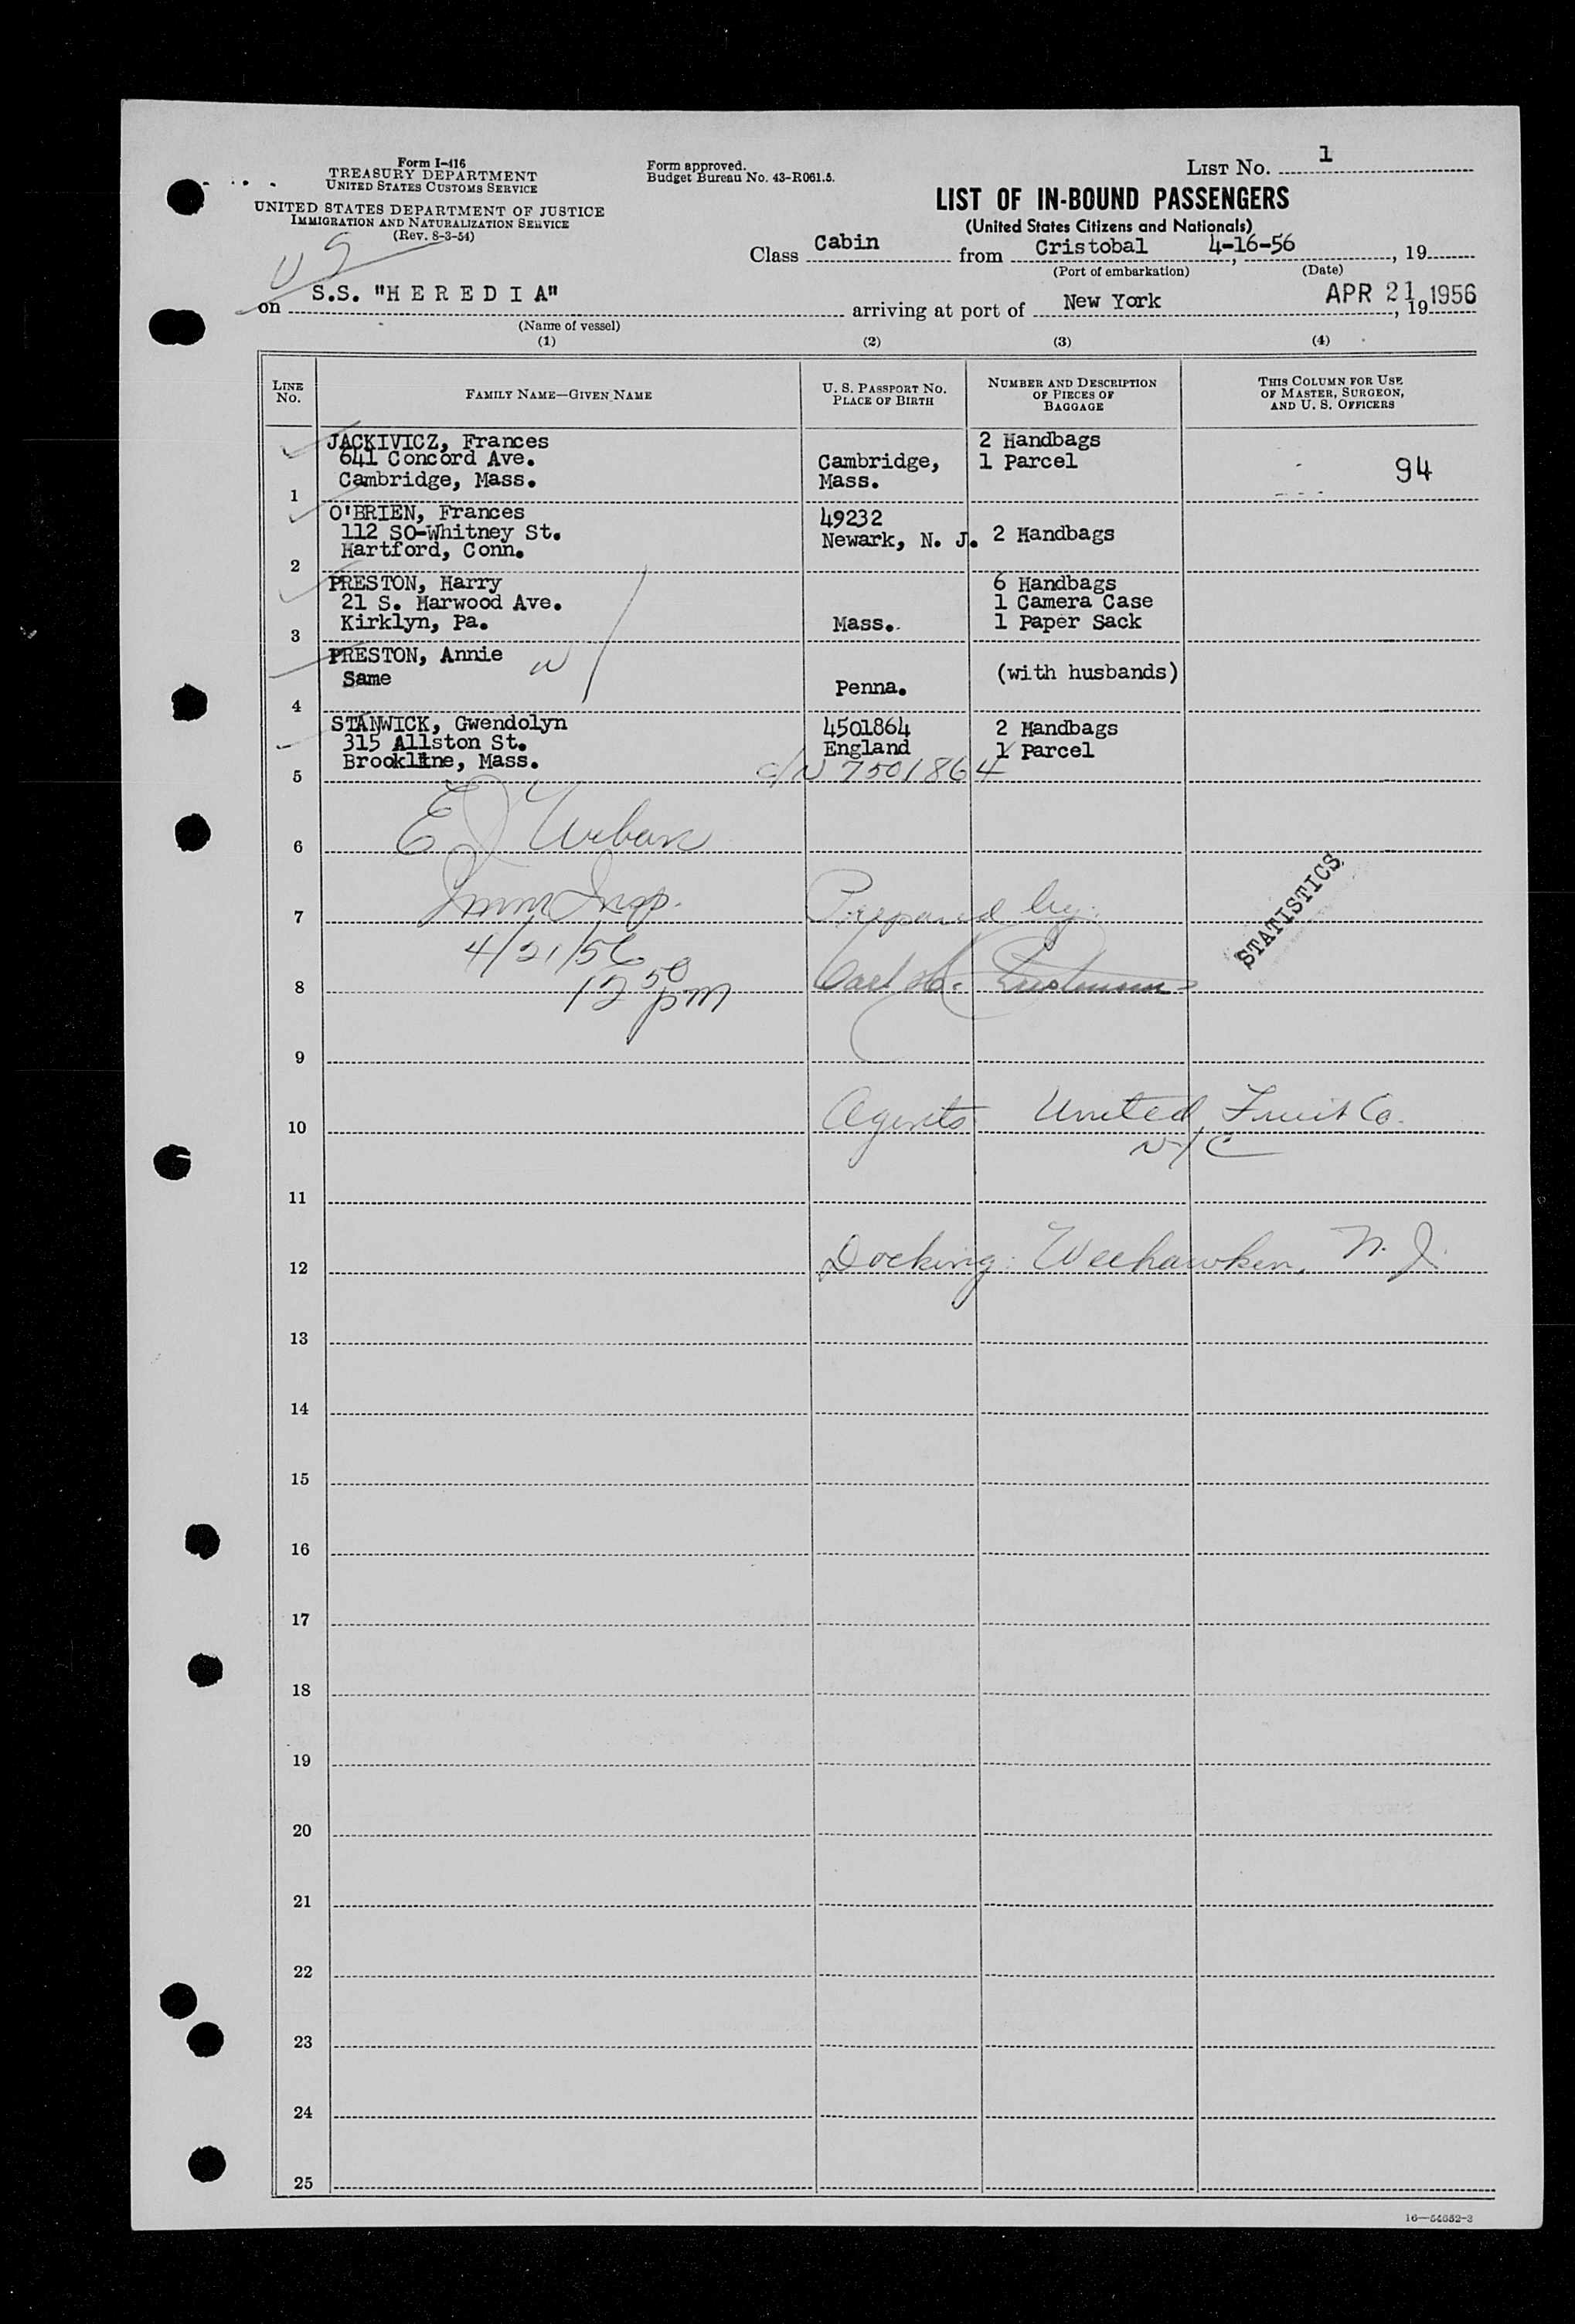 Form I-416
TREASURY DEPARTMENT
UNITED STATES CUSTOMS SERVICE
UNITED STATES DEPARTMENT OF JUSTICE
IMMIGRATION AND NATURALIZATION SERVICE
(Rev. 8-3-54)
Form approved.
Budget Bureau No. 43-R061.5.
LIST NO. 1
LIST OF IN-BOUND PASSENGERS
(United States Citizens and Nationals)
US
Class Cabin from Cristobal, 4-16-56, 19
(Port of embarkation) (Date)
on S.S. "H E R E D I A" arriving at port of New York APR 21, 19 1956
(Name of vessel)
(1) (2) (3) (4)
LINE NO. FAMILY NAME—GIVEN NAME U. S. PASSPORT NO. PLACE OF BIRTH NUMBER AND DESCRIPTION OF PIECES OF BAGGAGE THIS COLUMN FOR USE OF MASTER, SURGEON, AND U. S. OFFICERS
JACKIVICZ, Frances 2 Handbags
641 Concord Ave. Cambridge, 1 Parcel 94
1 Cambridge, Mass. Mass.
O'BRIEN, Frances 49232
112 SO-Whitney St. Newark, N. J. 2 Handbags
2 Hartford, Conn.
PRESTON, Harry 6 Handbags
21 S. Harwood Ave. 1 Camera Case
3 Kirklyn, Pa. Mass. 1 Paper Sack
PRESTON, Annie
4 Same Penna. (with husbands)
STANWICK, Gwendolyn 4501864 2 Handbags
315 Allston St. England 1 Parcel
5 Brookline, Mass.
c/N 7501864
6 E J Urban
7 Imm Insp. Prepared by:
4/21/56 STATISTICS
8 12 50 pm Carl H.
9
10 Agents United Fruit Co.
NYC
11
12 Docking: Weehawken, N. J.
13
14
15
16
17
18
19
20
21
22
23
24
25
16—54652-3